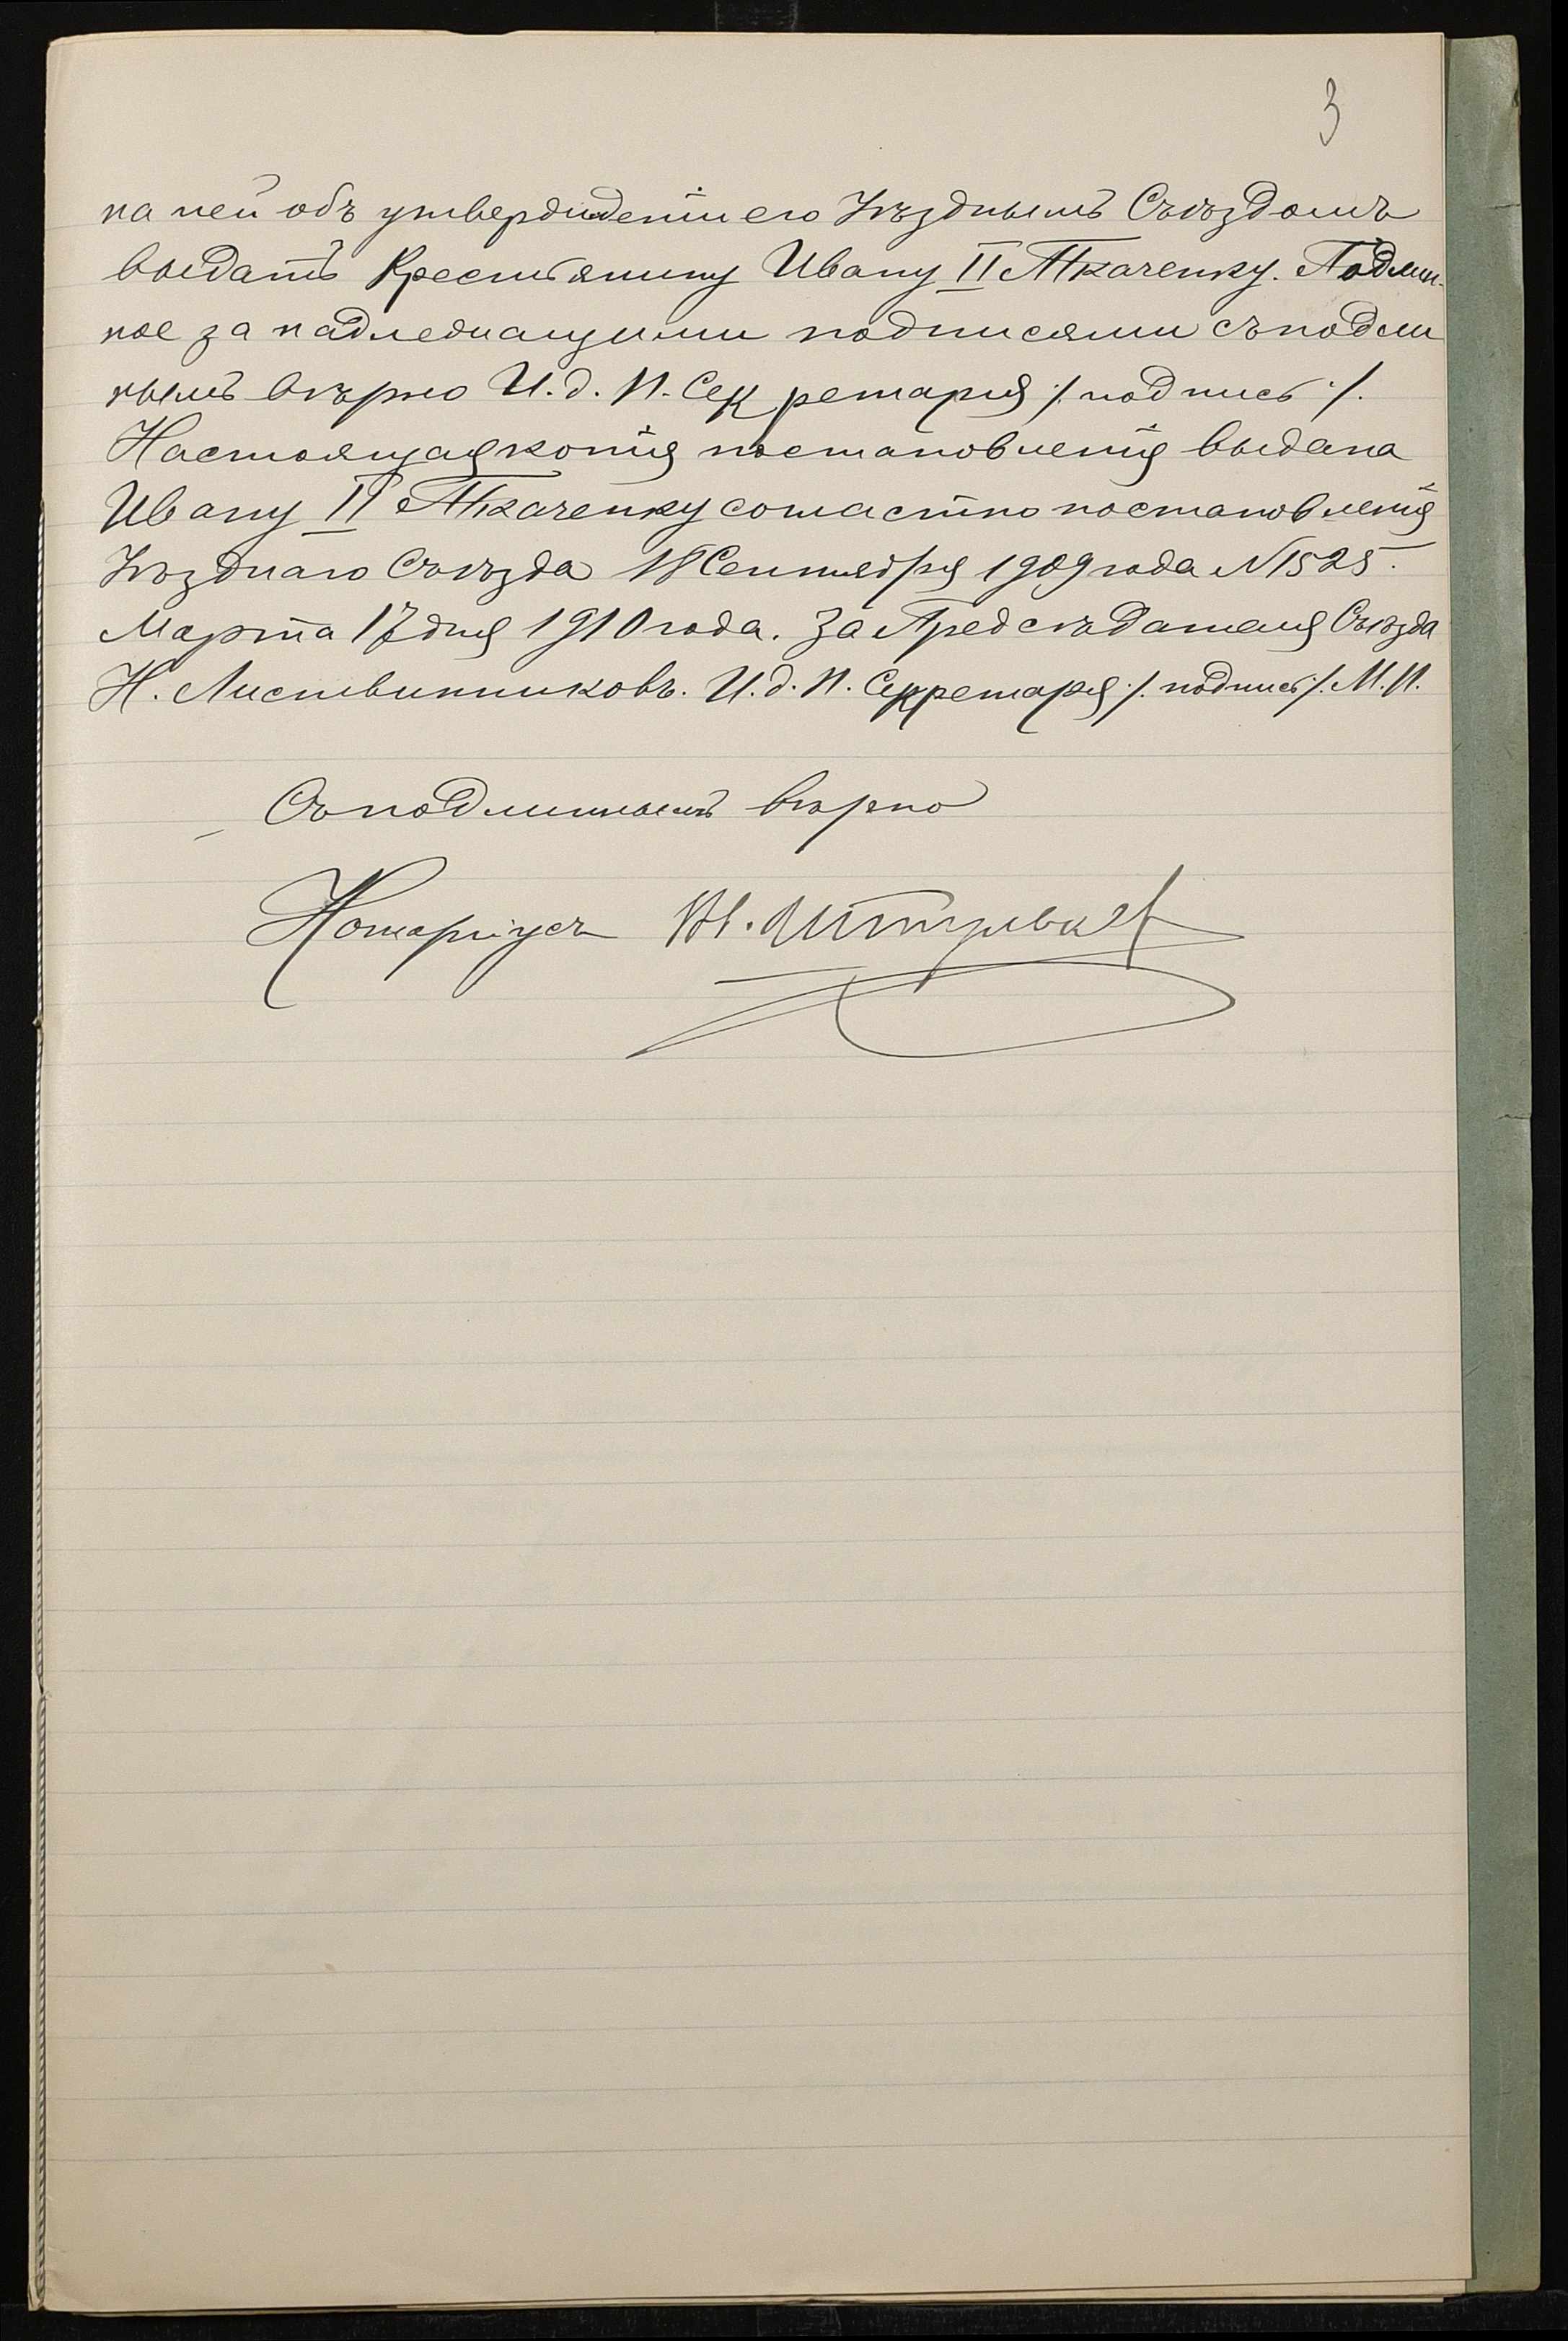 3
на ней объ утвержденіи его Уѣзднымъ Съѣздомъ
выдать Крестьянину Ивану II Ткаченку. Подлин-
ное за надлежащими подписями съ подли
нымъ вѣрно И. д. П. Секретаря ·/. подпись ·/.
Настоящая копія постановленія выдана
Ивану II Ткаченку согласно постановленія
Уѣзднаго Съѣзда 18 Сентября 1909 года N 1525.
Марта 17 дня 1910 года. За Предсѣдателя Съѣзда
Н. Листвинниковъ. И. д. П. Секретаря ·/. подпись ·/. М. П.
Съ подлиннымъ вѣрно
Нотаріусъ